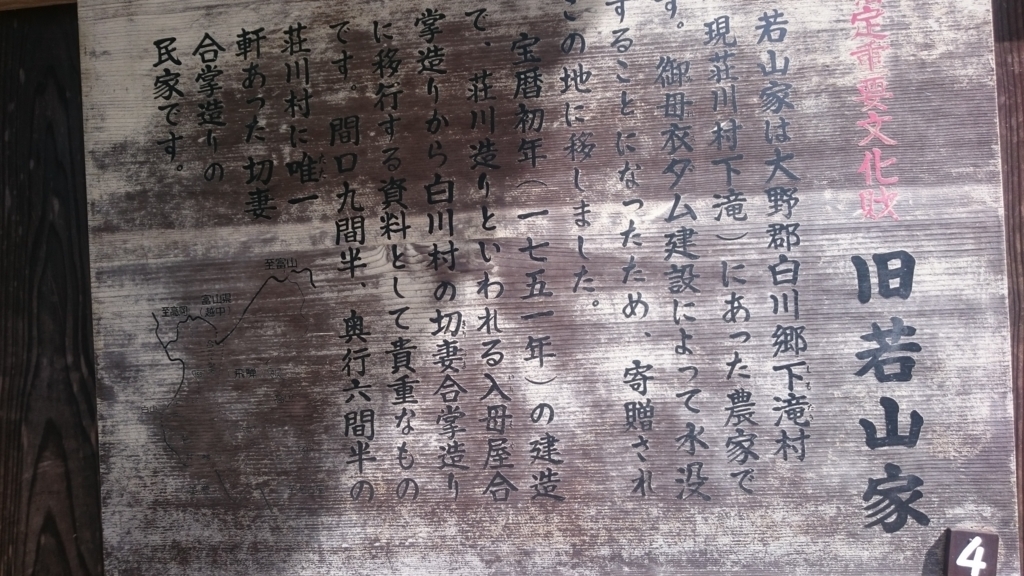 定重要文化財
旧若山家
若山家は大野郡白川郷下滝村
現荘川村下滝）にあった農家で
す。御母衣ダム建設によって水没
することになったため、寄贈され
この地に移しました。
宝暦初年（一七五一年）の建造
で、荘川造りといわれる入母屋合
掌造りから白川村の切妻合掌造り
に移行する資料として貴重なもの
です。間口九間半、奥行六間半の
荘川村に唯一
軒あった切妻
合掌造りの
民家です。
至富山
富山県
（越中）
飛騨
4